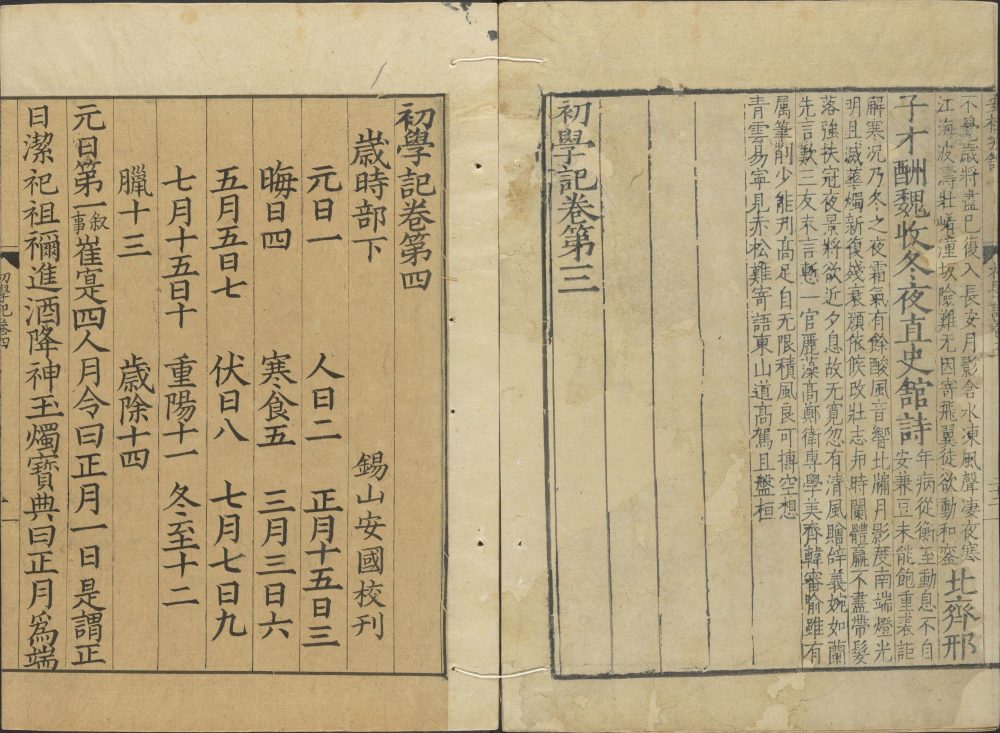 不覺歲將盡已復入長安月影含水凍風聲凄夜寒
江海波濤壯崤潼坂險難无因寄飛翼徒欲動和鑾
北齊邢
子才酬魏收冬夜直史館詩
年病從衡至動息不自
安兼豆未能飽重裘詎
解寒况乃冬之夜霜氣有餘酸風音響北牖月影度南端燈光
明且滅華燭新復殘衰顔依候改壯志與時闌體羸不盡帶髮
落強扶冠夜景將欲近夕息故无寛忽有清風贈辝義婉如蘭
先言歎三友末言慙一官麗藻髙鄭衛專學美齊韓審喻雖有
属筆削少能刋髙足自无限積風良可摶空想
青雲易寧見赤松難寄語東山道髙駕且盤桓
初學記卷第三
初學記卷第四
歲時部下 錫山安國校刋
元日一 人日二 正月十五日三
晦日四 寒食五 三月三日六
五月五日七 伏日八 七月七日九
七月十五日十 重陽十一 冬至十二
臘十三 歲除十四
元日第一叙事崔寔四人月令曰正月一日是謂正
日潔祀祖禰進酒降神玉燭寶典曰正月爲端
初學記卷四